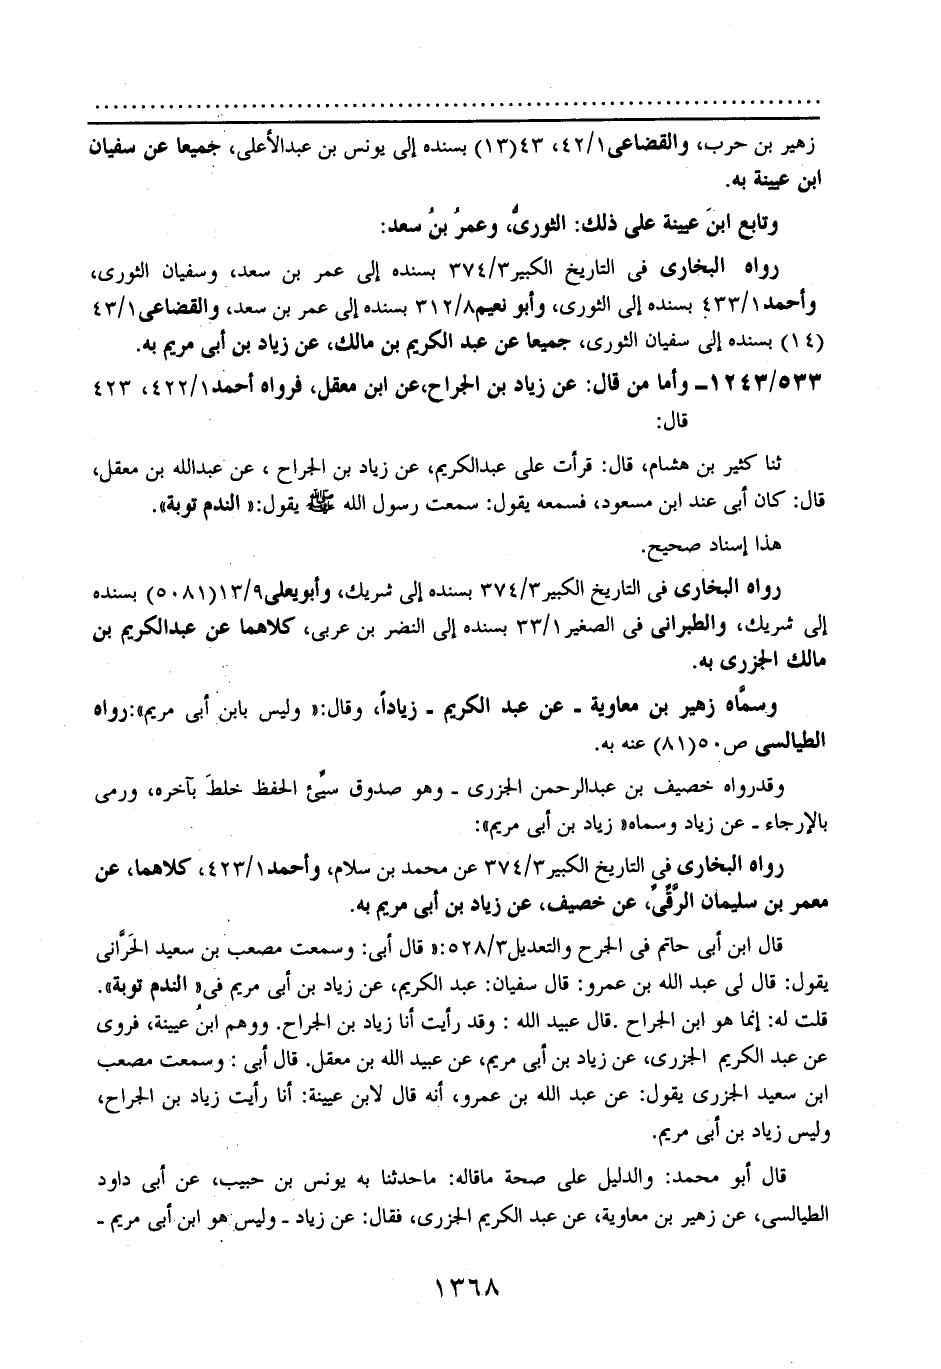 زهير بن حرب، والقضاعى١/٤٢، ٤٣(١٣) بسنده إلى يونس بن عبدالأعلى، جميعا عن سفيان
ابن عيينة به.
وتابع ابنَ عيينة على ذلك: الثورىُّ، وعمرُ بنُ سعد:
رواه البخارى فى التاريخ الكبير٣/٣٧٤ بسنده إلى عمر بن سعد، وسفيان الثورى،
وأحمد١/٤٣٣ بسنده إلى الثورى، وأبو نعيم٨/٣١٢ بسنده إلى عمر بن سعد، والقضاعى١/٤٣
(١٤) بسنده إلى سفيان الثورى، جميعا عن عبد الكريم بن مالك، عن زياد بن أبى مريم به.
١٢٤٣/٥٣٣ـ وأما من قال: عن زياد بن الجراح،عن ابن معقل، فرواه أحمد١/٤٢٢، ٤٢٣
قال:
ثنا كثير بن هشام، قال: قرأت على عبدالكريم، عن زياد بن الجراح ، عن عبدالله بن معقل،
قال: كان أبى عند ابن مسعود، فسمعه يقول: سمعت رسول الله ﷺ يقول:« الندم توبة».
هذا إسناد صحيح.
رواه البخارى فى التاريخ الكبير٣/٣٧٤ بسنده إلى شريك، وأبويعلى٩/١٣(٥٠٨١) بسنده
إلى شريك، والطبرانى فى الصغير١/٣٣ بسنده إلى النضر بن عربى، كلاهما عن عبدالكريم بن
مالك الجزرى به.
وسمَّاه زهير بن معاوية ـ عن عبد الكريم ـ زياداً، وقال:« وليس بابن أبى مريم»:رواه
الطيالسى ص٥٠(٨١) عنه به.
وقدرواه خصيف بن عبدالرحمن الجزرى ـ وهو صدوق سيِّئ الحفظ خلطَ بآخره، ورمى
بالإرجاء ـ عن زياد وسماه« زياد بن أبى مريم»:
رواه البخارى فى التاريخ الكبير٣/٣٧٤ عن محمد بن سلام، وأحمد١/٤٢٣، كلاهما، عن
معمر بن سليمان الرَّقِّىِّ، عن خصيف، عن زياد بن أبى مريم به.
قال ابن أبى حاتم فى الجرح والتعديل٣/٥٢٨:« قال أبى: وسمعت مصعب بن سعيد الحَرَّانى
يقول: قال لى عبد الله بن عمرو: قال سفيان: عبد الكريم، عن زياد بن أبى مريم فى« الندم توبة».
قلت له: إنما هو ابن الجراح .قال عبيد الله : وقد رأيت أنا زياد بن الجراح. ووهم ابنُ عيينة، فروى
عن عبد الكريم الجزرى، عن زياد بن أبى مريم، عن عبيد الله بن معقل. قال أبى : وسمعت مصعب
ابن سعيد الجزرى يقول: عن عبد الله بن عمرو، أنه قال لابن عيينة: أنا رأيت زياد بن الجراح،
وليس زياد بن أبى مريم.
قال أبو محمد: والدليل على صحة ماقاله: ماحدثنا به يونس بن حبيب، عن أبى داود
الطيالسى، عن زهير بن معاوية، عن عبد الكريم الجزرى، فقال: عن زياد ـ وليس هو ابن أبى مريم ـ
١٣٦٨